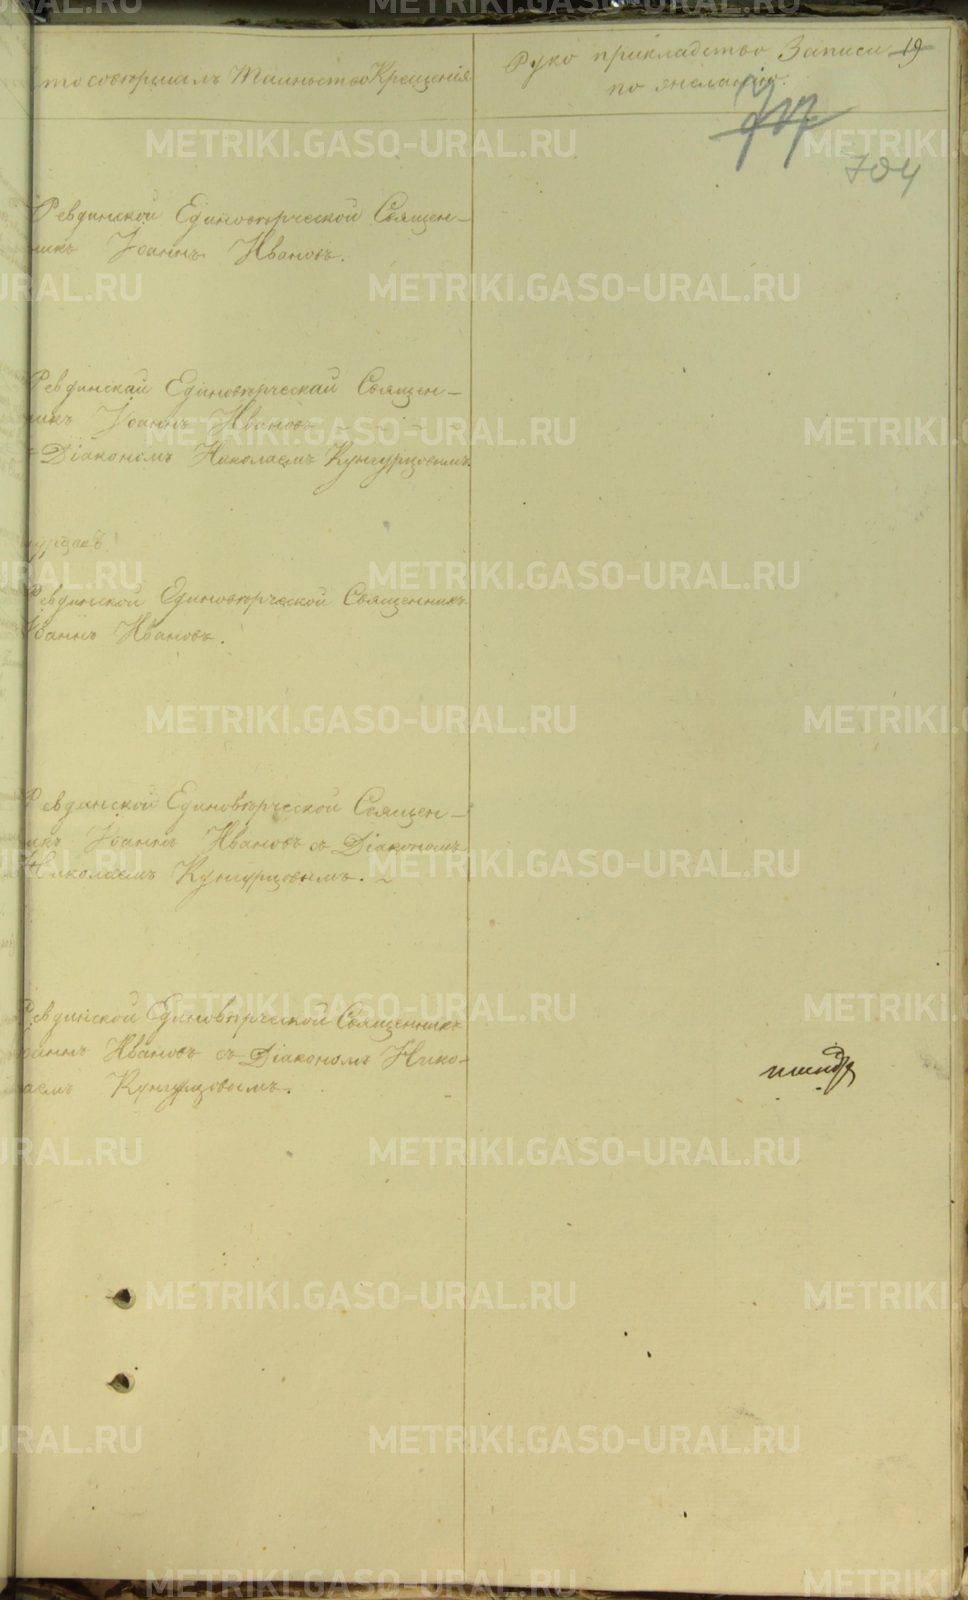 то совершалъ Таинство Крещенія
Руко прикладство Записи 19
по желанію.
704
Ревдинской Единоверческой Священ-
никъ Іоаннъ Ивановъ.
Ревдинскай Единоверческай Священ-
никъ Іоаннъ Ивановъ
Діакономъ Николаемъ Кунгурцовымъ.
Ревдинской Единоверческой Священникъ
Іоаннъ Ивановъ.
Ревдинской Единоверческой Священ-
икъ Іоаннъ Ивановъ съ Діакономъ
Николаемъ Кунгурцовымъ.
Ревдинской Единоверческой Священникъ
Іоаннъ Ивановъ съ Діакономъ Нико-
лаемъ Кунгурцовымъ.
METRIKI.GASO-URAL.RU